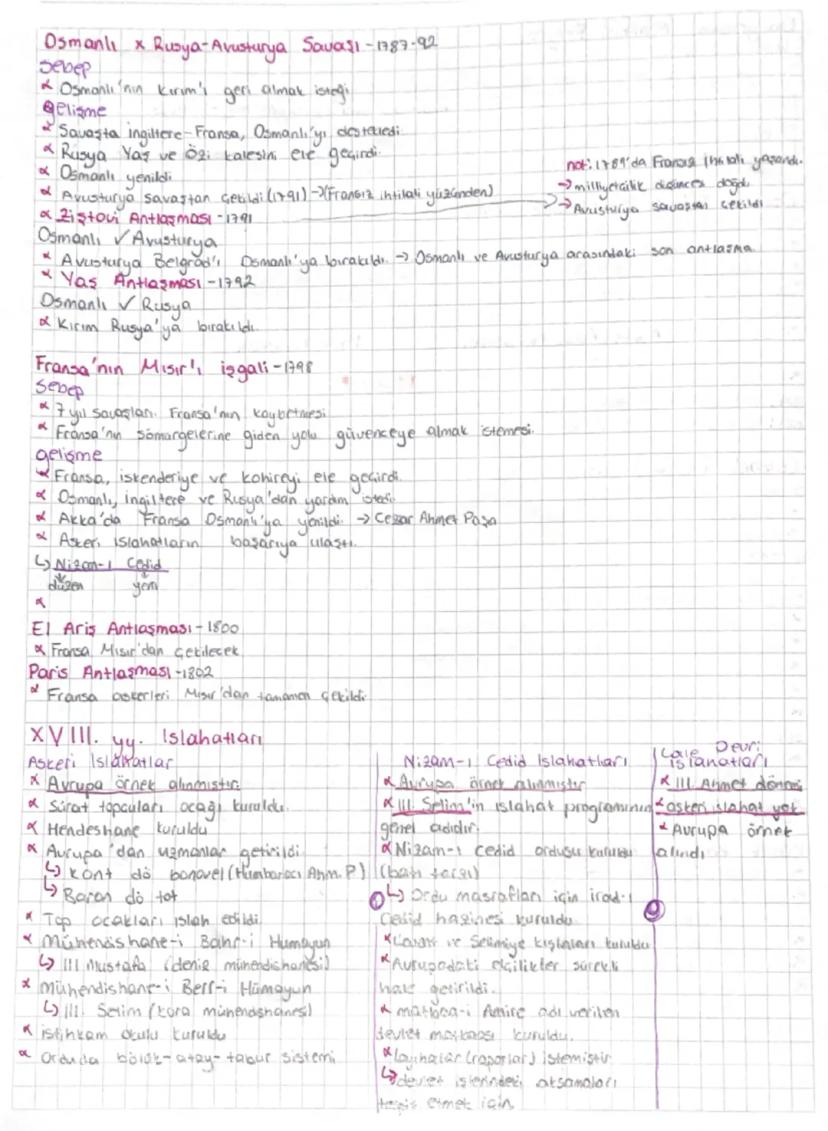 Osmanlı x Rusya-Avusturya Savaşı - 1787-92
Sebep
∝ Osmanlı'nın Kırım'ı geri almak isteği
Gelişme
∝ Savaşta ingiltere-Fransa, Osmanlı'yı destekledi.
∝ Rusya Yaş ve Özi kalesini ele geçirdi.
∝ Osmanlı yenildi
∝ Avusturya savaştan çekildi (1791) → (Fransız ihtilali yüzünden)
not: 1789'da Fransız ihtilali yaşandı.
→ milliyetcilik düşünces doğdu
→ Avusturya savaştan çekildi
∝ Ziştovi Antlaşması - 1791
Osmanlı ✓ Avusturya
∝ Avusturya Belgrad'ı Osmanlı'ya bırakıldı. → Osmanlı ve Avusturya arasındaki son antlaşma
∝ Yaş Antlaşması - 1792
Osmanlı ✓ Rusya
∝ Kırım Rusya'ya bırakıldı.
Fransa'nın Mısır'ı işgali - 1798
Sebep
∝ 7 yıl savaşları Fransa'nın kaybetmesi
∝ Fransa'nın sömürgelerine giden yolu güvenceye almak istemesi.
gelişme
∝ Fransa, iskenderiye ve kahireyi ele geçirdi.
∝ Osmanlı, ingiltere ve Rusya'dan yardım istedi.
∝ Akka'da Fransa Osmanlı'ya yenildi. → Cezzar Ahmet Paşa
∝ Askeri ıslahatların başarıya ulaştı.
↳ Nizam-ı Cedid
düzen yeni
∝
El Ariş Antlaşması - 1800
∝ Fransa Mısır'dan çekilecek
Paris Antlaşması - 1802
∝ Fransa askerleri Mısır'dan tamamen çekildi
XVIII. yy. Islahatları
Askeri Islahatlar
∝ Avrupa örnek alınmıştır.
∝ Sürat topçuları ocağı kuruldu.
∝ Hendeshane kuruldu
∝ Avrupa'dan uzmanlar getirildi
↳ Kont dö bonavel (Humbaracı Ahm. P)
↳ Baron dö tot
∝ Top ocakları ıslah edildi.
∝ Mühendishane-i Bahr-i Hümayun
↳ III Mustafa (deniz mühendishanesi)
∝ mühendishane-i Berr-i Hümayun
↳ III. Selim (kara mühendshanesi)
∝ istihkam okulu kuruldu
∝ Orduda bölük-alay-tabur sistemi
Nizam-ı Cedid Islahatları
∝ Avrupa örnek alınmıştır
∝ III. Selim'in ıslahat programının
genel adıdır.
∝ Nizam-ı cedid ordusu kuruldu
(batı tarzı)
↳ Ordu masrafları için irad-ı
Cedid hazinesi kuruldu
∝ Levent ve Selimiye kışlaları kuruldu
∝ Avrupadaki elçilikler sürekli
hale getirildi.
∝ matbaa-i Amire adı verilen
devlet matbaası kuruldu.
∝ layihalar (raporlar) istemiştir
↳ devlet işlerindeki aksamaları
tespis etmek için
Lale Devri
Islahatları
∝ III. Ahmet dönemi
∝ askeri ıslahat yok
∝ Avrupa örnek
alındı